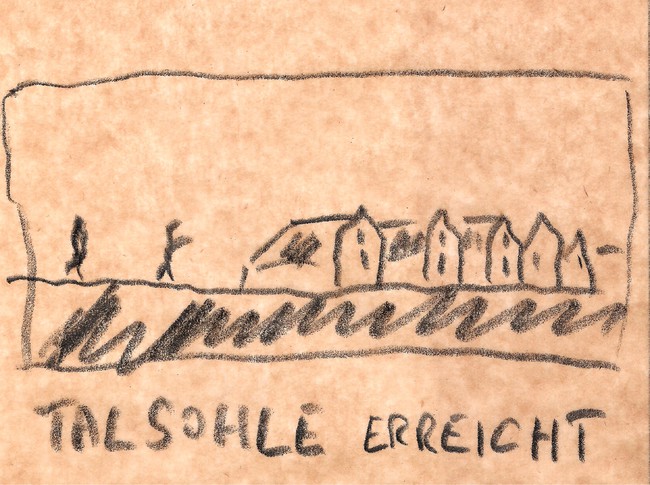 TALSOHLE ERREICHT